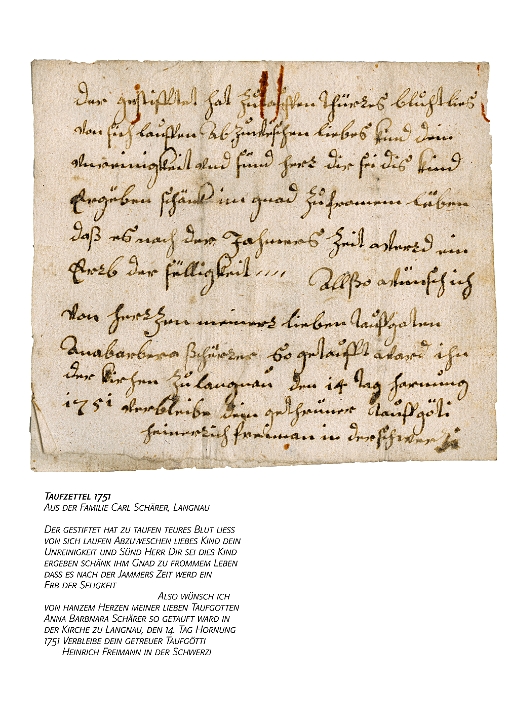 Der gestifftet hat zu tauffen thürres bluht lies
von sich lauffen Ab zuweschen liebes kind dein
vnreinigkeit vnd sünd herr dir sei dis kind
Ergeben schänk im gnad zu fromem läben
daß es nach der Jahmers zeit werd ein
Erb der sälligkeit .... Allßo wünsch ich
von hertzen meiner lieben tauffgoten
Anabarbera Schärer So getaufft ward ihn
der kirchen zu langnau den 14 tag hornung
1751 verbleibe dein getreuner tauffgöti
heinerich freiman in der schwerzi
Taufzettel 1751
Aus der Familie Carl Schärer, Langnau
Der gestiftet hat zu taufen teures Blut liess
von sich laufen Abzuweschen liebes Kind dein
Unreinigkeit und Sünd Herr Dir sei dies Kind
ergeben schänk ihm Gnad zu frommem Leben
dass es nach der Jammers Zeit werd ein
Erb der Seligkeit
Also wünsch ich
von hanzem Herzen meiner lieben Taufgotten
Anna Barbnara Schärer so getauft ward in
der Kirche zu Langnau, den 14. Tag Hornung
1751 Verbleibe dein getreuer Taufgötti
Heinrich Freimann in der Schwerzi